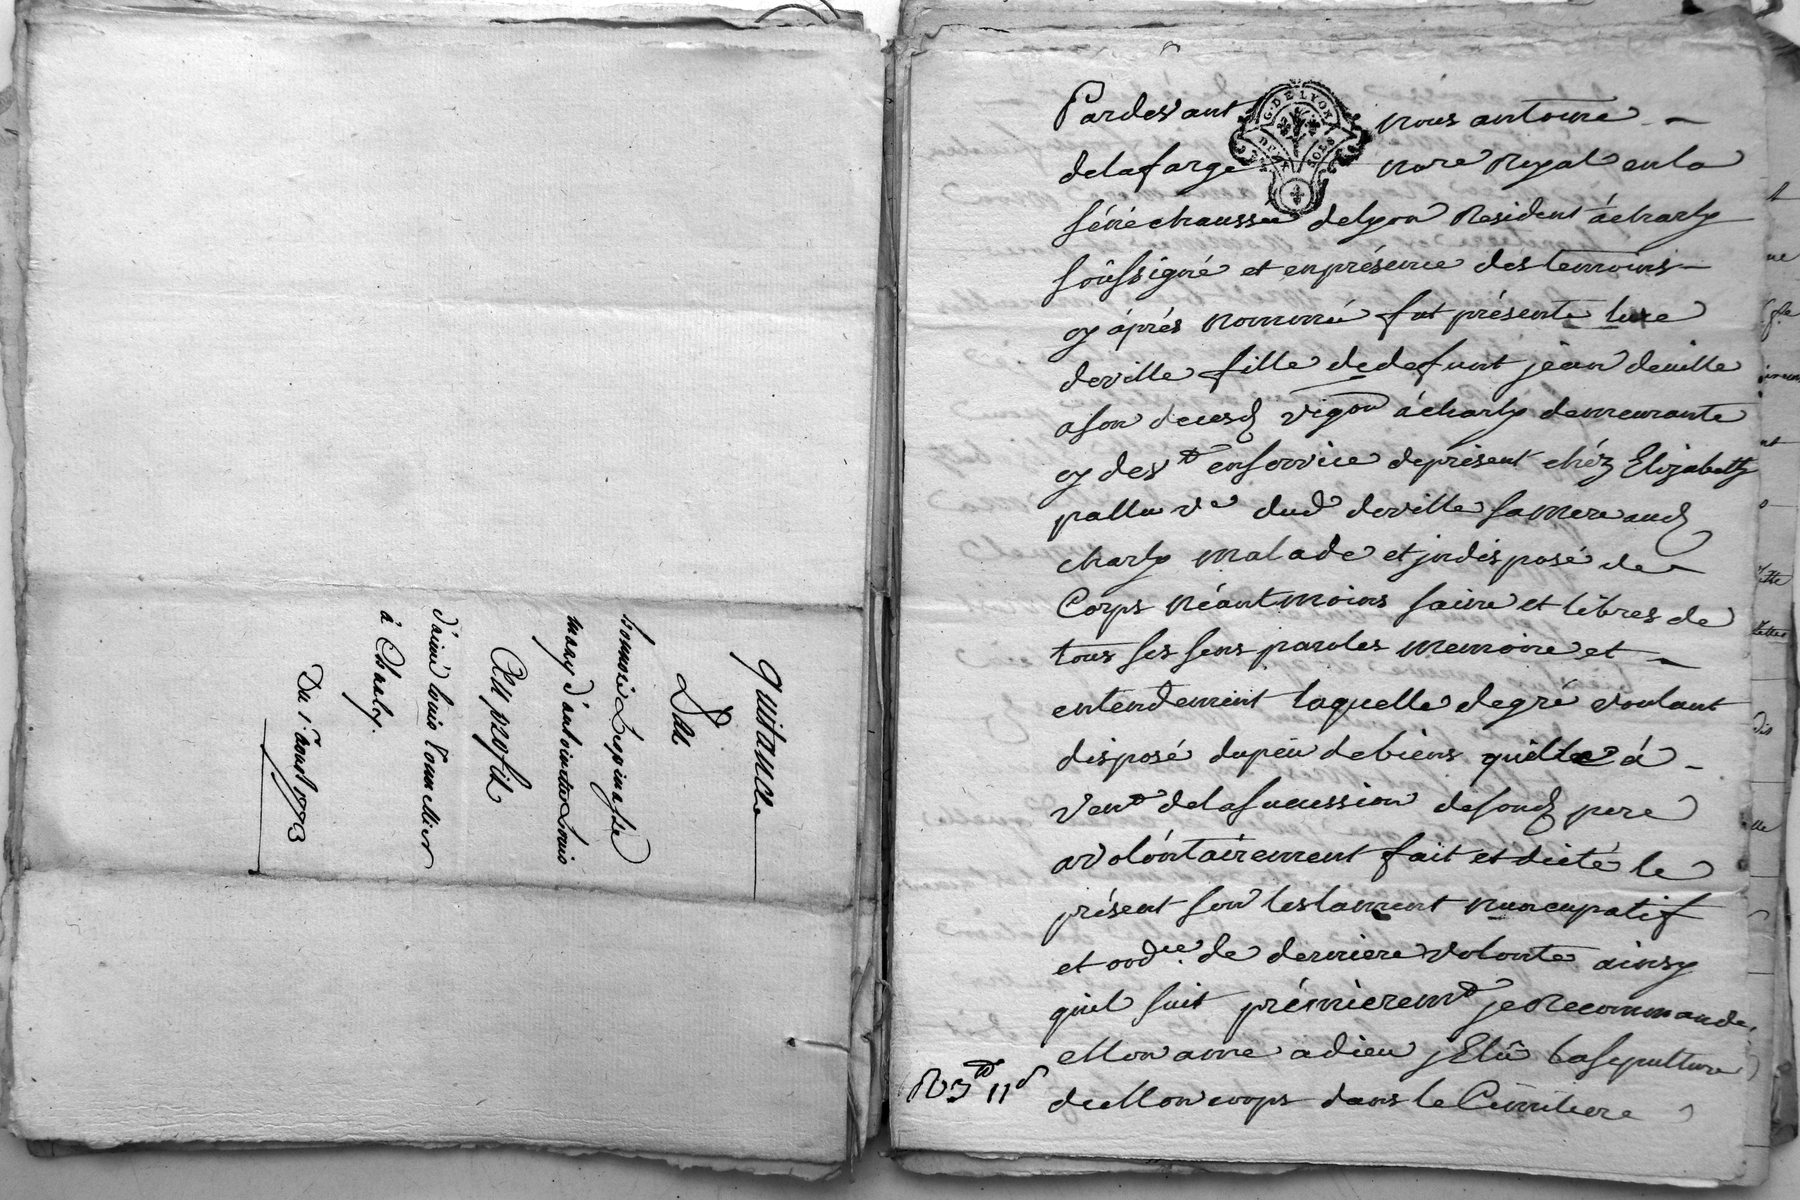 quitance
Par
honnoré Lespinasse
mary d'antoinette Louis
Au profit
d'aimé Louis Tonnellier
à Charly.
Du 1er aoust 1773
G. DE LYON
DEUX SOLS
Pardevant nous antoine
delafarge nore Royal en la
sénéchaussée de lyon Resident á charly
soûssigné et en présence des temoins
cy áprés nommé fut présente luce
deville fille de defunt jéan deville
a son decesd vigon á charly demeurante
cy dest en service de présent chéz Elizabeth
pallu ve dud deville sa mere aud
charly malade et jndisposé de
Corps néantmoins saine et libres de
tous ses sens paroles memoire et
entendement laquelle de gré voulant
disposé du peu de biens quelle á
vent de la sucession de sond pere
a volontairement fait et dicté le
présent son testament nuncupatif
et ordre de derniere volonté ainsy
quil suit prémierement je Recommande
Mon ame a dieu jElû la sepulture
de Mon corps dans le Cimitiere
R 3tt 11s